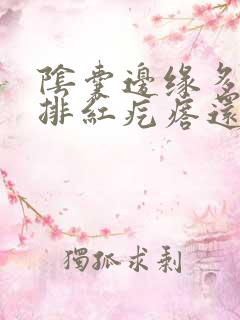 陰囊邊缘多
排紅疙瘩還
獨孤求剩